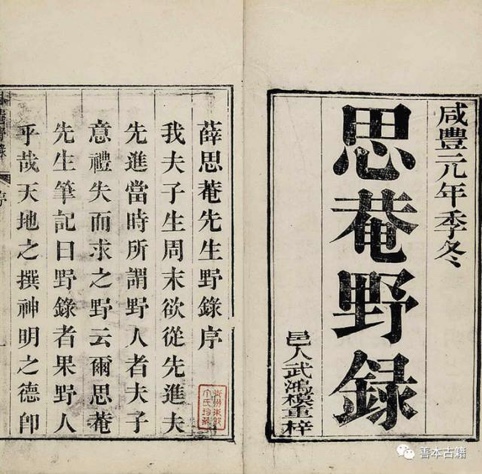 咸豐元年季冬
思菴野録
邑人武鴻模重梓
薛思菴先生野錄序
我夫子生周末欲從先進夫
先進當時所謂野人者夫子
意禮失而求之野云爾思菴
先生筆記曰野錄者果野人
乎哉天地之撰神明之德卽
善本古籍